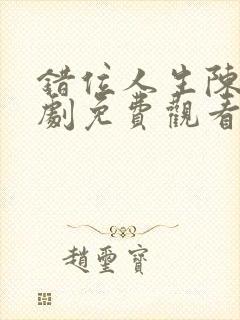 錯位人生陳
劇免費觀看
趙璽寶